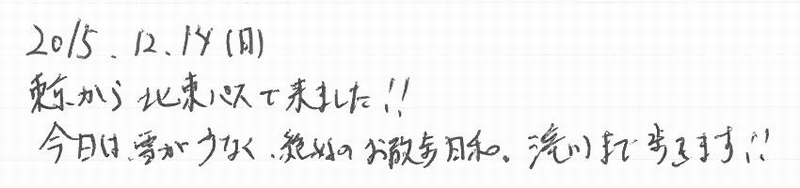 2015.12.14(日)
東京から北東パスで来ました!!
今日は、雪が少なく、絶好のお散歩日和。滝川まで歩きます!!